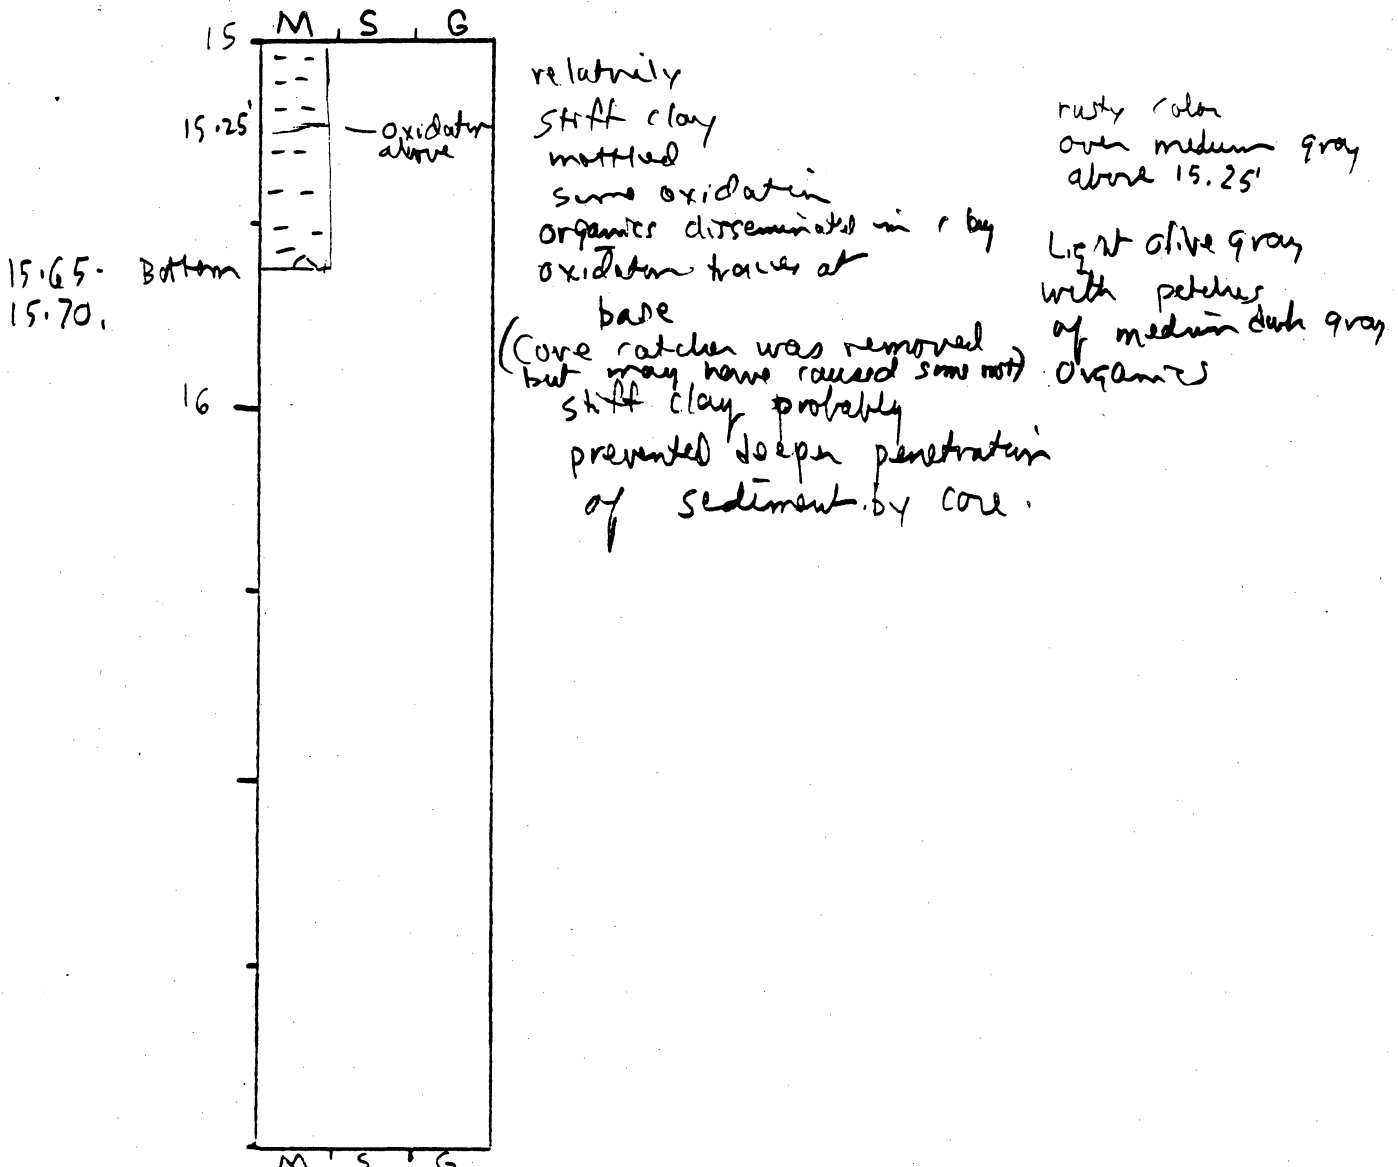 M S G
15
15.25'
— oxidation
above
15.65- Bottom
15.70.
16
relatively
stiff clay
mottled
some oxidation
organics disseminated in clay
oxidation traces at
base
(Core catcher was removed
but may have caused some mott)
stiff clay probably
prevented deeper penetration
of sediment by core.
rusty color
over medium gray
above 15.25'
Light olive gray
with patches
of medium dark gray
organics
M S G